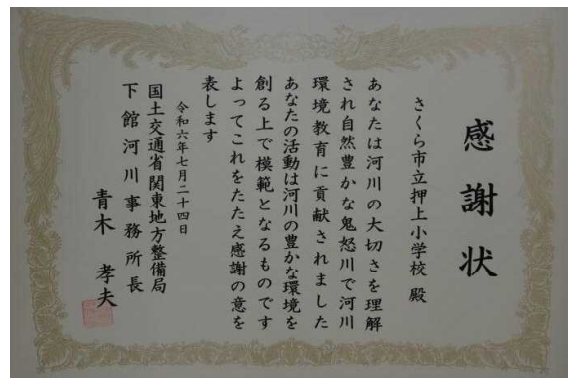 感謝状
さくら市立押上小学校 殿
あなたは河川の大切さを理解
され自然豊かな鬼怒川で河川
環境教育に貢献されました
あなたの活動は河川の豊かな環境を
創る上で模範となるものです
よってこれをたたえ感謝の意を
表します
令和六年七月二十四日
国土交通省関東地方整備局
下館河川事務所長
青木 孝夫